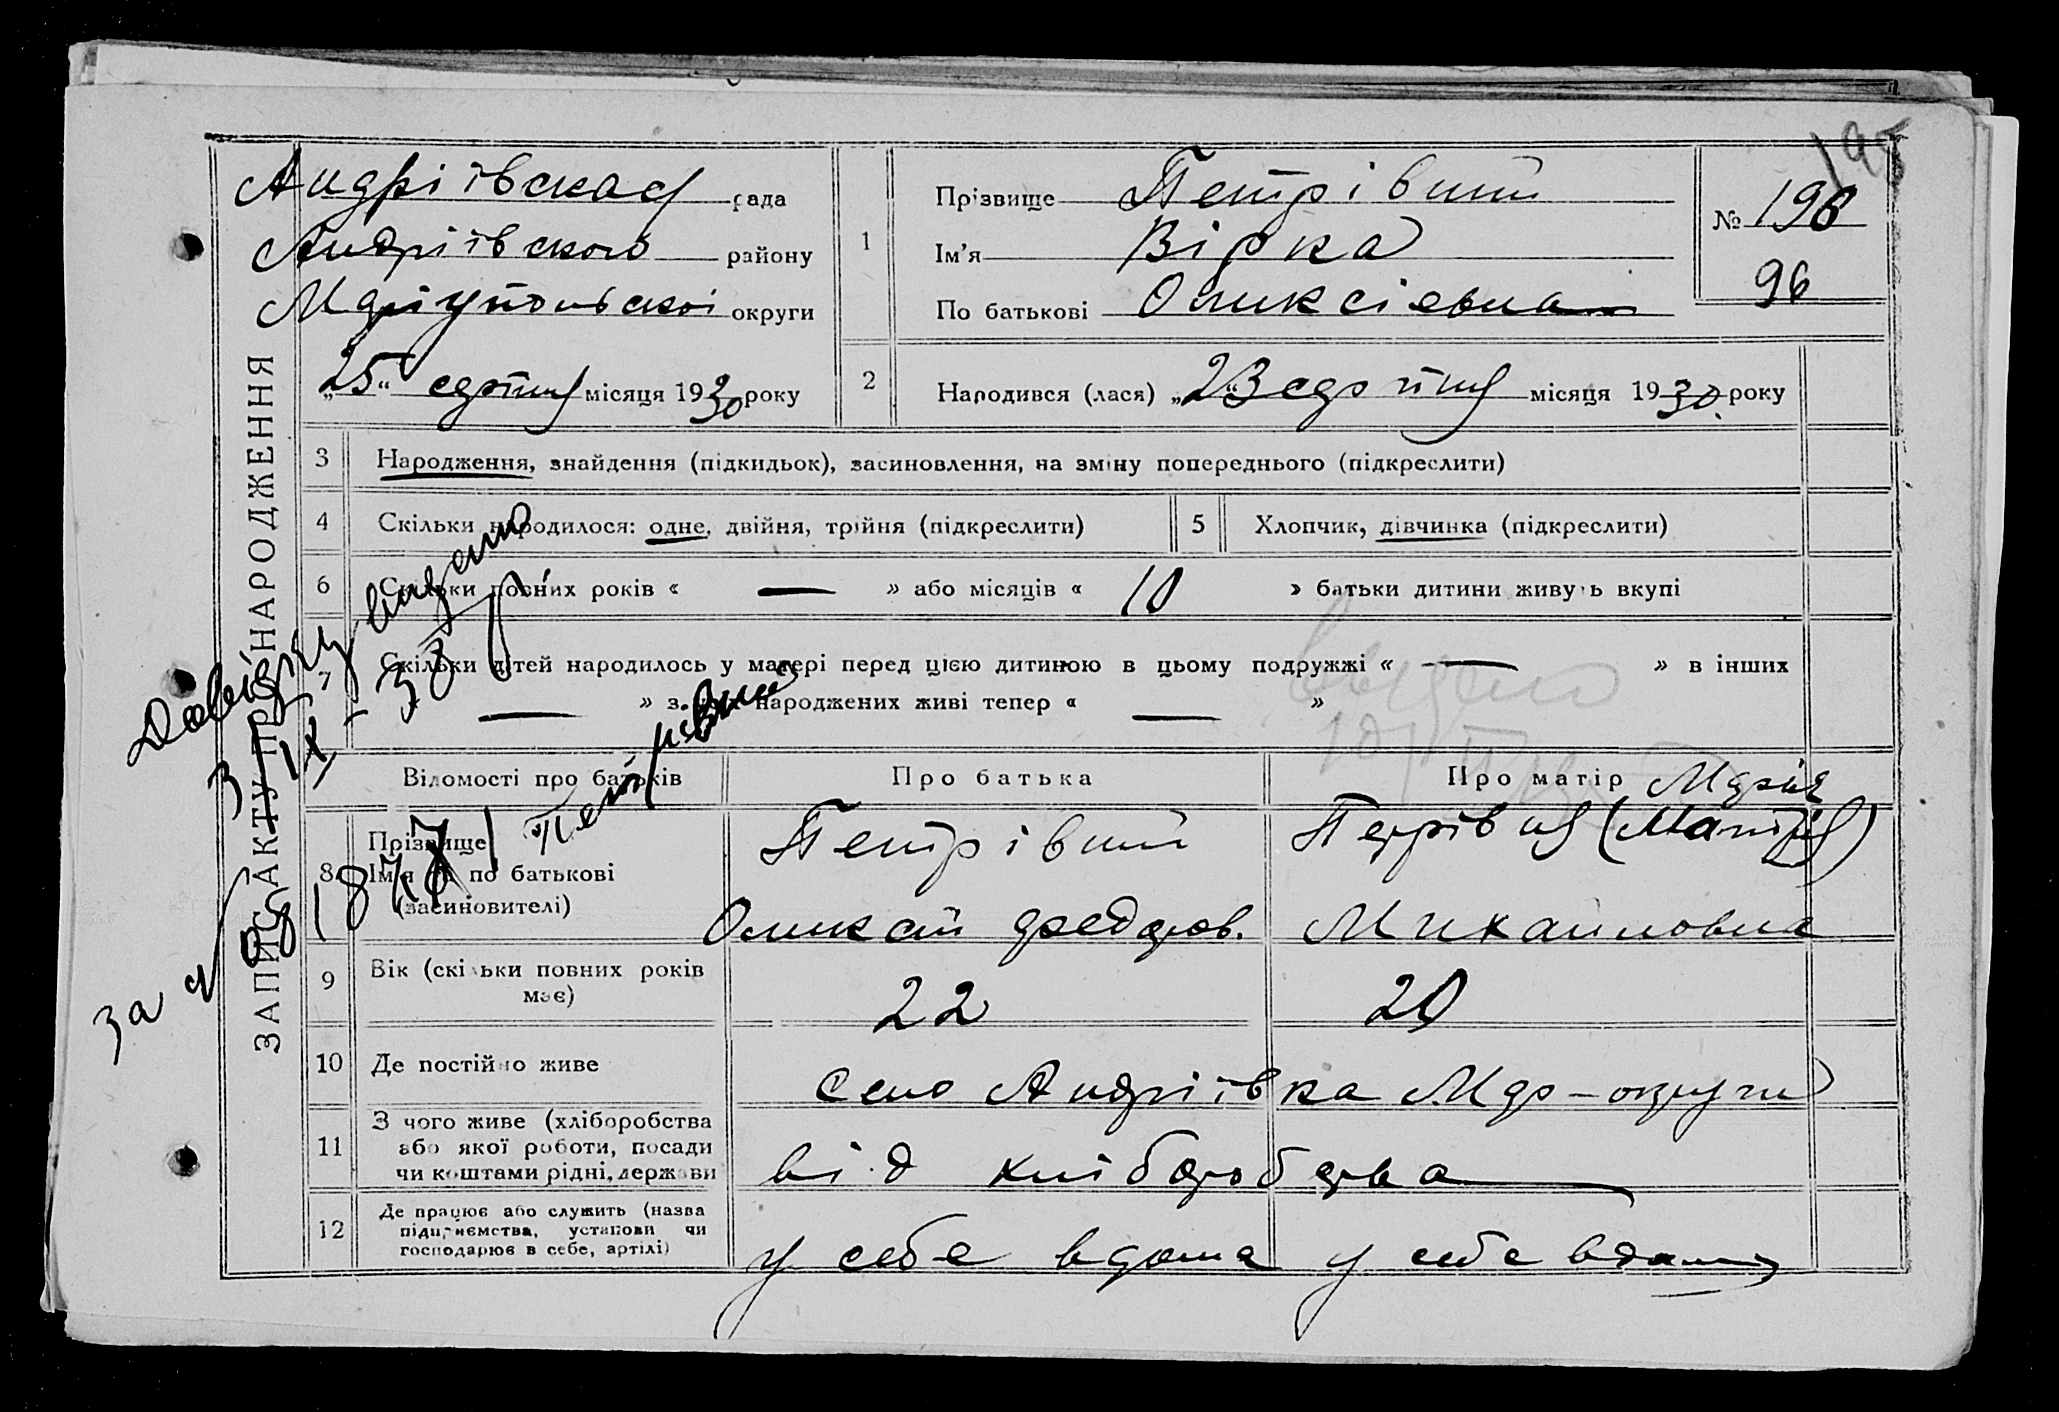 195
Андріївская рада
Андріївского району
Маріупольскої округи
„25“ серпня місяця 1930 року
1
Прізвище Петрівний
Ім'я Вірка
По батькові Олексієвна
№ 196
96
2
Народився (лася) „23“ серпня місяця 1930 року
ЗАПИС АКТУ ПРО НАРОДЖЕННЯ
3 Народження, знайдення (підкидьок), засиновлення, на зміну попереднього (підкреслити)
4 Скільки народилося: одне, двійня, трійня (підкреслити)
5 Хлопчик, дівчинка (підкреслити)
6 Скільки повних років « — » або місяців « 10 » батьки дитини живуть вкупі
7 Скільки дітей народилось у матері перед цією дитиною в цьому подружжі « — » в інших
— » з них народжених живі тепер « — »
Видано
Довідку видано
3/IX-38 р
за № 18 Петрівний
Відомості про батьків
Про батька
Про матір Марія
8 Прізвище
Ім'я та по батькові
(засиновителі)
Петрівний
Олексій Федоров.
Петрівна
Михайловна
9 Вік (скільки повних років
має)
22
20
10 Де постійно живе
Село Андріївка Мар-округи
11 З чого живе (хліборобства
або якої роботи, посади
чи коштами рідні, держави
від хліборобства
12 Де працює або служить (назва
підприємства, установи чи
господарює в себе, артілі)
у себе вдома
у себе вдома